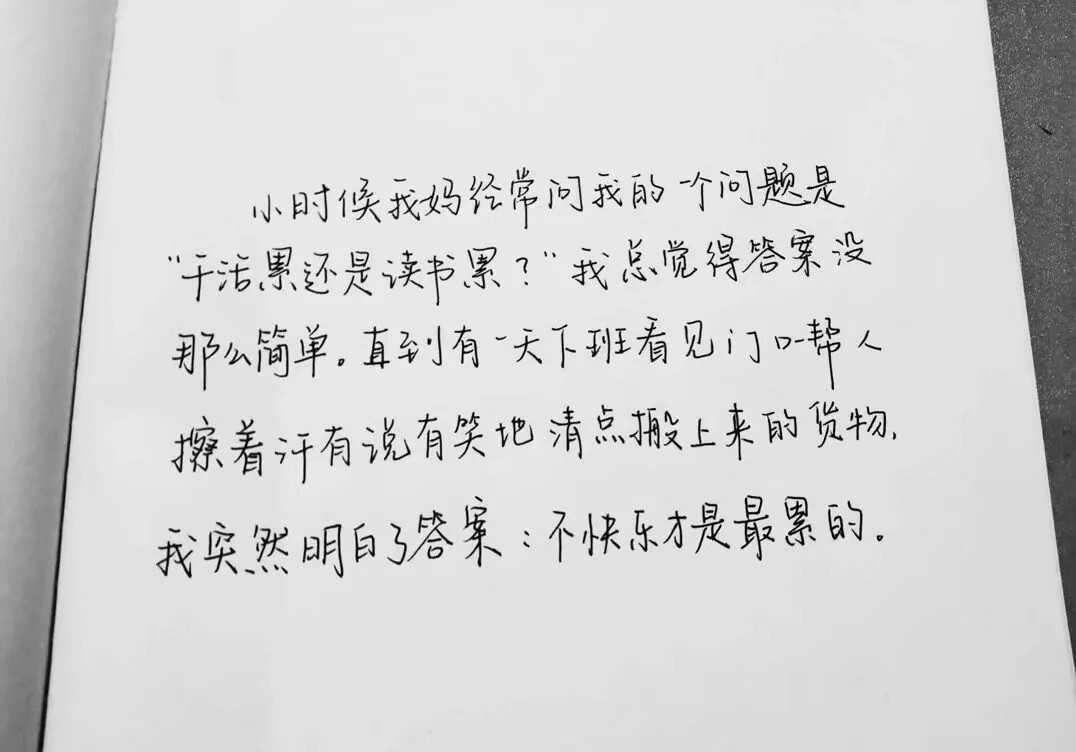 小时候我妈经常问我的一个问题是
“干活累还是读书累？”我总觉得答案没
那么简单。直到有一天下班看见门口一帮人
擦着汗有说有笑地清点搬上来的货物,
我突然明白了答案：不快乐才是最累的。